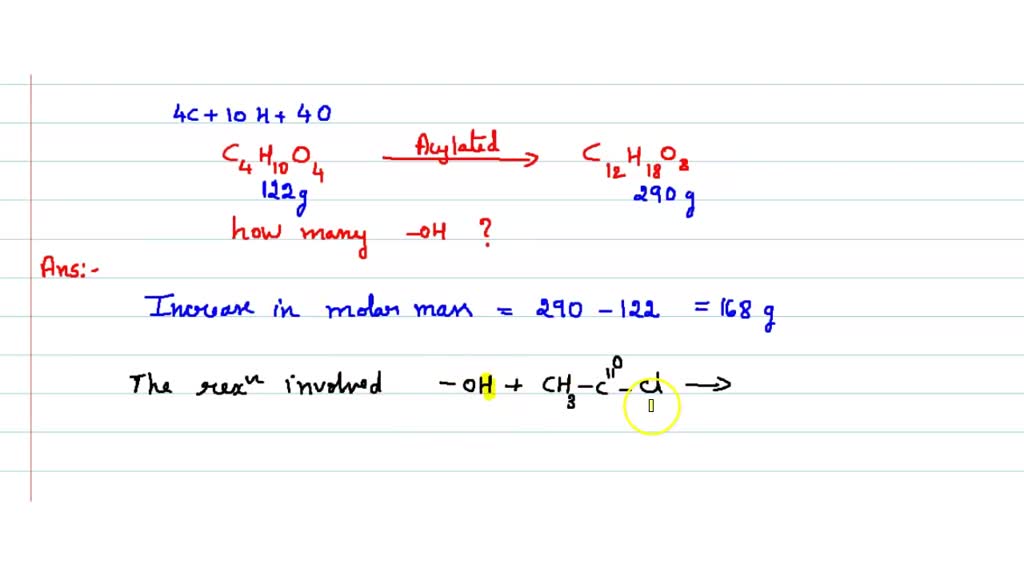 4C + 10 H + 4 O
C₄H₁₀O₄ Acylated → C₁₂H₁₈O₈
122g 290 g
how many -OH ?
Ans:-
Increase in molar mass = 290 - 122 = 168 g
The rexⁿ involved - OH + CH₃-C(=O)-Cl →